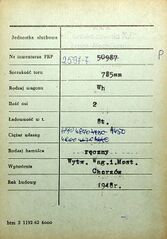 Jednostka służbowa
Nr inwentarza PKP 2591-7 50987
P
Szerokość toru 785mm
Rodzaj wagonu Wh
Ilość osi 2
Ładowność w t. 8t.
Ciężar własny 4450
Rodzaj hamulca ręczny
Wytwórnia Wytw. Wag. i Most. Chorzów
Rok budowy 1948r.